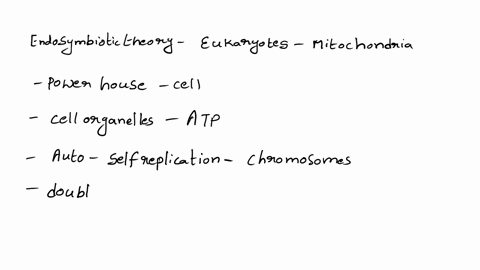 Endosymbiotic theory - Eukaryotes - Mitochondria
- Power house - cell
- cell organelles - ATP
- Auto - Self replication - Chromosomes
- doubl